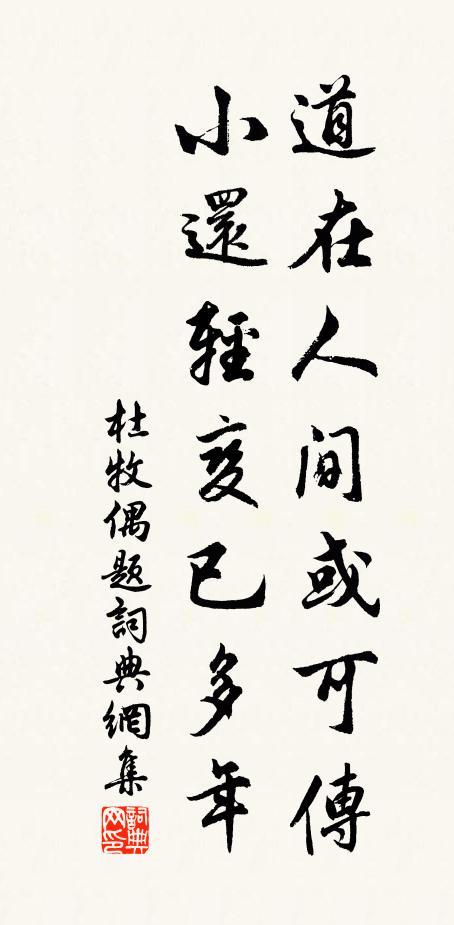 道在人间或可傳
小還輕变已多年
杜牧偶题詞典網集
詞典网印